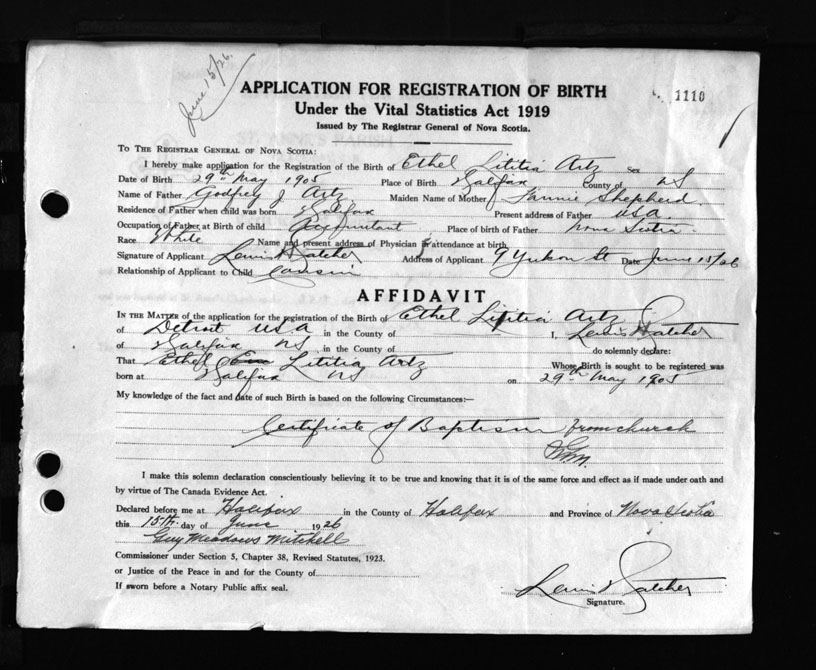 June 15/26.
APPLICATION FOR REGISTRATION OF BIRTH
1110
Under the Vital Statistics Act 1919
Issued by The Registrar General of Nova Scotia.
TO THE REGISTRAR GENERAL OF NOVA SCOTIA:
I hereby make application for the Registration of the Birth of Ethel Lititia Artz Sex
Date of Birth 29th May 1905 Place of Birth Halifax County of NS
Name of Father Godfrey J Artz Maiden Name of Mother Fannie Shepherd.
Residence of Father when child was born Halifax Present address of Father USA.
Occupation of Father at Birth of child Accountant Place of birth of Father Nova Scotia
Race White Name and present address of Physician in attendance at birth
Signature of Applicant Lewis Hatcher Address of Applicant 9 Yukon St Date June 15/26
Relationship of Applicant to Child Cousin
AFFIDAVIT
IN THE MATTER of the application for the registration of the Birth of Ethel Lititia Artz
of Detroit USA in the County of I, Lewis Hatcher
of Halifax NS in the County of do solemnly declare:
That Ethel Lititia Artz Whose Birth is sought to be registered was
born at Halifax NS on 29th May 1905
My knowledge of the fact and date of such Birth is based on the following Circumstances:—
Certificate of Baptism from church
G.M.M.
I make this solemn declaration conscientiously believing it to be true and knowing that it is of the same force and effect as if made under oath and
by virtue of The Canada Evidence Act.
Declared before me at Halifax in the County of Halifax and Province of Nova Scotia
this 15th. day of June 1926
Guy Meadows Mitchell
Commissioner under Section 5, Chapter 38, Revised Statutes, 1923.
or Justice of the Peace in and for the County of
If sworn before a Notary Public affix seal.
Lewis Hatcher
Signature.